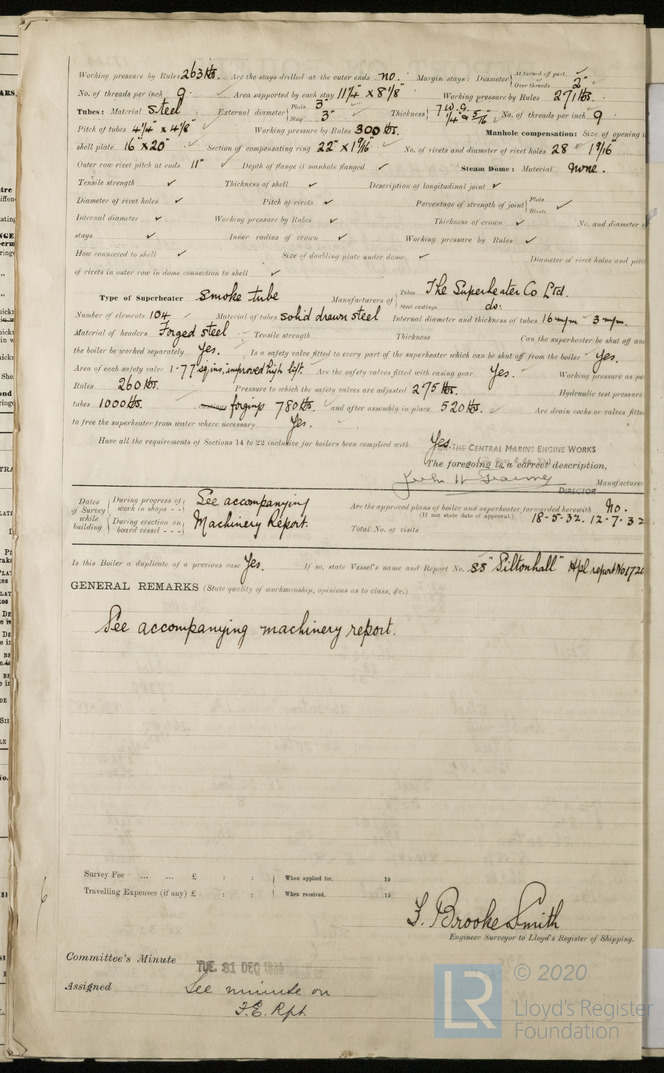 Working pressure by Rules 263 lbs. Are the stays drilled at the outer ends no. Margin stays: Diameter { At turned off part, ✓ Over threads 2"
No. of threads per inch 9 ✓ Area supported by each stay 11¼" x 8⅞" Working pressure by Rules 271 lbs.
Tubes: Material Steel External diameter { Plain 3" Stay 3" ✓ Thickness { 7 W.G. No. of threads per inch 9
Pitch of tubes 4¼" x 4⅛" ✓ Working pressure by Rules 300 lbs. Manhole compensation: Size of opening
shell plate 16" x 20" ✓ Section of compensating ring 22" x 1 9/16" ✓ No. of rivets and diameter of rivet holes 28 - 1 9/16"
Outer row rivet pitch at ends 11" ✓ Depth of flange if manhole flanged ✓ Steam Dome: Material None.
Tensile strength ✓ Thickness of shell ✓ Description of longitudinal joint ✓
Diameter of rivet holes ✓ Pitch of rivets ✓ Percentage of strength of joint { Plate Rivets ✓
Internal diameter ✓ Working pressure by Rules ✓ Thickness of crown ✓ No. and diameter
stays ✓ Inner radius of crown ✓ Working pressure by Rules ✓
How connected to shell ✓ Size of doubling plate under dome ✓ Diameter of rivet holes and pitch
of rivets in outer row in dome connection to shell ✓
Type of Superheater Smoke tube Manufacturers of { Tubes The Superheater Co Ltd. Steel castings do.
Number of elements 104 ✓ Material of tubes solid drawn steel Internal diameter and thickness of tubes 16 m/m - 3 m/m.
Material of headers Forged steel ✓ Tensile strength Thickness Can the superheater be shut off and
the boiler be worked separately Yes. Is a safety valve fitted to every part of the superheater which can be shut off from the boiler ✓ Yes.
Area of each safety valve 1.77 sq ins, improved high lift. Are the safety valves fitted with easing gear Yes. ✓ Working pressure as per
Rules 260 lbs. Pressure to which the safety valves are adjusted 275 lbs. Hydraulic test pressure
tubes 1000 lbs. forgings 780 lbs. ✓ and after assembly in place 520 lbs. ✓ Are drain cocks or valves fitted
to free the superheater from water where necessary Yes. ✓
Have all the requirements of Sections 14 to 22 inclusive for boilers been complied with Yes.
FOR THE CENTRAL MARINE ENGINE WORKS
The foregoing is a correct description,
Manufacturer
DIRECTOR
Dates of Survey while building { During progress of work in shops - - See accompanying Are the approved plans of boiler and superheater forwarded herewith No.
(If not state date of approval.) 18-5-32. 12-7-32
During erection on board vessel - - - Machinery Report. Total No. of visits
Is this Boiler a duplicate of a previous case Yes. If so, state Vessel's name and Report No. SS "Siltonhall" Hpl report No 172
GENERAL REMARKS (State quality of workmanship, opinions as to class, &c.)
See accompanying machinery report.
Survey Fee ... ... £ : : When applied for, 19
Travelling Expenses (if any) £ : : When received, 19
F. Brooke Smith
Engineer Surveyor to Lloyd's Register of Shipping.
Committee's Minute TUE. 31 DEC 1935
Assigned See minute on
F.E. Rpt
LR © 2020
Lloyd's Register
Foundation